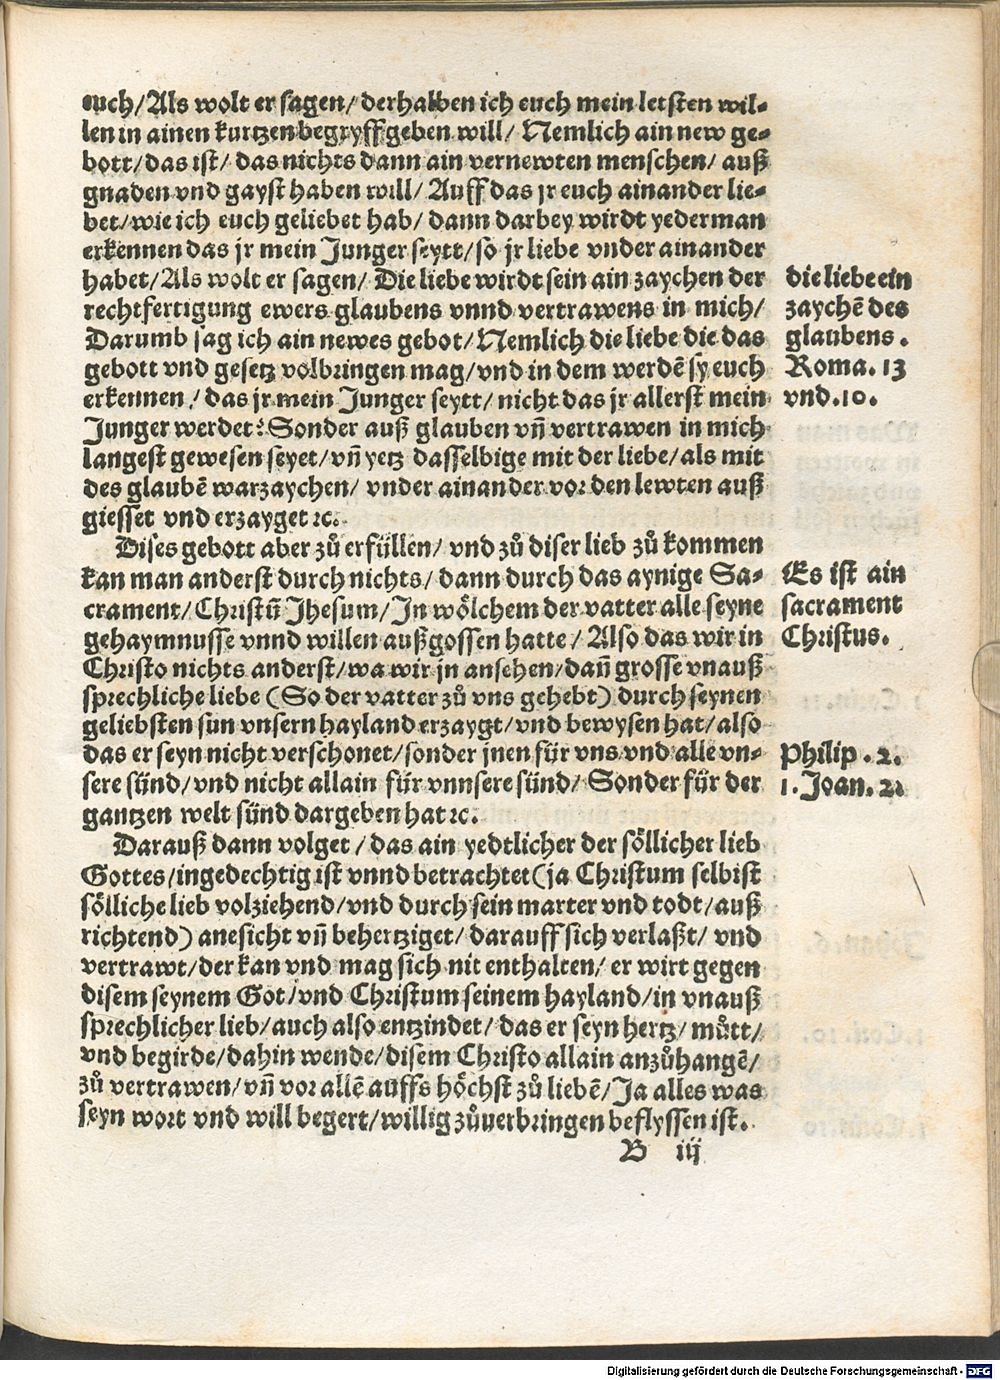 euch/Als wolt er sagen/ derhalben ich euch mein letsten wil-
len in ainen kurtzen begryff geben will/ Nemlich ain new ge-
bott/das ist/ das nichts dann ain vernewten menschen/ auß
gnaden vnd gayst haben will/ Auff das jr euch ainander lie-
bet/wie ich euch geliebet hab/ dann darbey wirdt yederman
erkennen das jr mein Junger seytt/so jr liebe vnder ainander
habet/Als wolt er sagen/ Die liebe wirdt sein ain zaychen der
rechtfertigung ewers glaubens vnnd vertrawens in mich/
Darumb sag ich ain newes gebot/Nemlich die liebe die das
gebott vnd gesetz volbringen mag/vnd in dem werdẽ sy euch
erkennen/ das jr mein Junger seytt/ nicht das jr allerst mein
Junger werdet: Sonder auß glauben vñ vertrawen in mich
langest gewesen seyet/vñ yetz dasselbige mit der liebe/als mit
des glaubẽ warzaychen/ vnder ainander vor den lewten auß
giesset vnd erzayget ꝛc.
die liebe ein
zaychẽ des
glaubens.
Roma. 13
vnd.10.
Dises gebott aber zů erfüllen/ vnd zů diser lieb zů kommen
kan man anderst durch nichts/ dann durch das aynige Sa-
crament/Christũ Jhesum/In wölchem der vatter alle seyne
gehaymnusse vnnd willen außgossen hatte/ Also das wir in
Christo nichts anderst/wa wir jn ansehen/dañ grosse vnauß
sprechliche liebe (So der vatter zů vns gehebt) durch seynen
geliebsten sun vnsern hayland erzaygt/vnd bewysen hat/also
das er seyn nicht verschonet/sonder jnen für vns vnd alle vn-
sere sünd/vnd nicht allain für vnnsere sünd/ Sonder für der
gantzen welt sünd dargeben hat ꝛc.
Es ist ain
sacrament
Christus.
Philip. 2.
1. Joan. 2
Darauß dann volget/das ain yedtlicher der söllicher lieb
Gottes/ingedechtig ist vnnd betrachtet(ja Christum selbist
sölliche lieb volziehend/vnd durch sein marter vnd todt/auß
richtend) anesicht vñ behertziget/ darauff sich verlaßt/ vnd
vertrawt/der kan vnd mag sich nit enthalten/ er wirt gegen
disem seynem Got/vnd Christum seinem hayland/in vnauß
sprechlicher lieb/auch also entzindet/das er seyn hertz/ můtt/
vnd begirde/dahin wende/disem Christo allain anzůhangẽ/
zů vertrawen/vñ vor allẽ auffs höchst zů liebẽ/Ja alles was
seyn wort vnd will begert/willig zůuerbringen beflyssen ist.
B iij
Digitalisierung gefördert durch die Deutsche Forschungsgemeinschaft - DFG